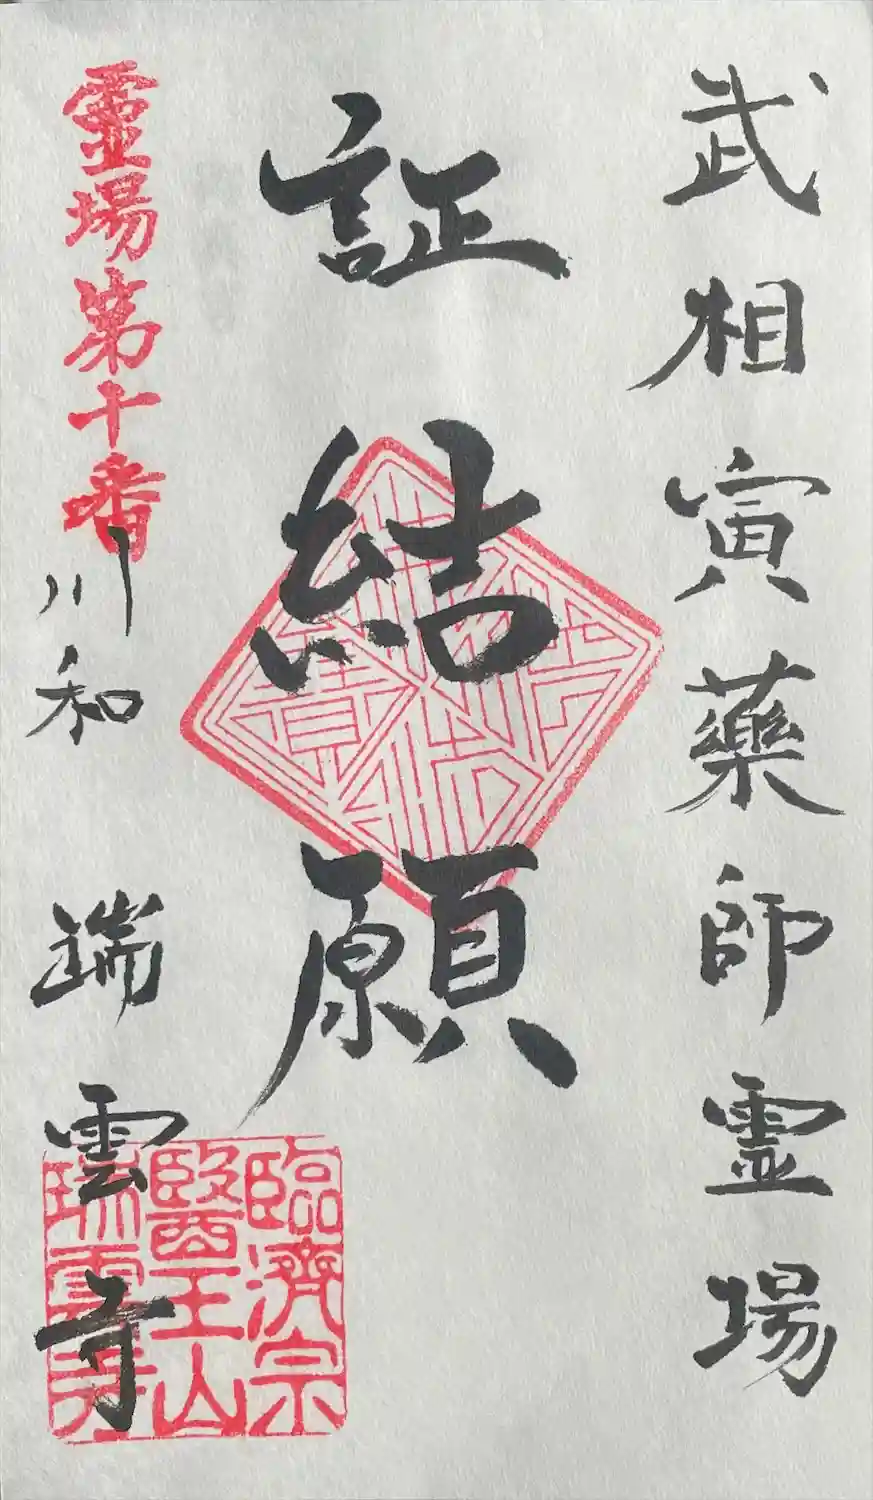 武相寅薬師霊場
証結願
霊場第十番
川和 瑞雲寺
臨濟宗
醫王山
瑞雲寺